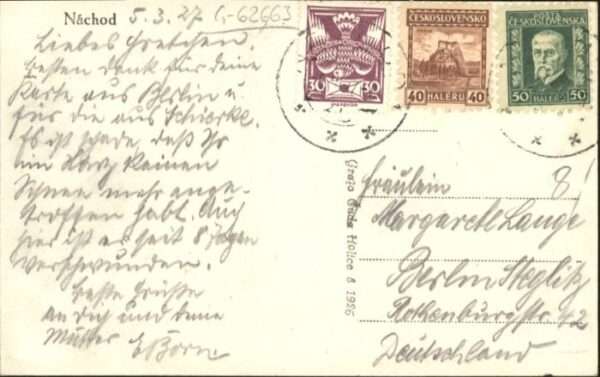 Náchod 5.3.27
Liebes Gretchen.
Besten Dank für deine
Karte aus Berlin u.
für die aus Schierke.
Es ist schade, daß Ihr
im Harz keinen
Schnee mehr ange-
troffen habt. Auch
hier ist er seit 8 Tagen
verschwunden.
Beste Grüße
an dich und deine
Mutter E Born
30 30
ČESKOSLOVENSKO
40 HALÉŘŮ 40
POŠTA
ČESKOSLOVENSKÁ
50 HALÉŘŮ 50
Holice 1926
Fräulein 8!
Margarett Lange
Berlin Steglitz
Rothenburgstr 42
Deutschland